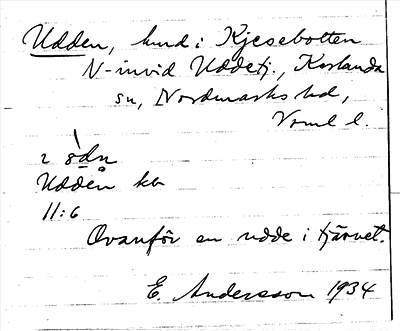 Udden, hund i Kjesebotten
N-invid Uddetj., Karlanda
sn, Nordmarks hd,
Vrml l.
Udden kb
11:6
Ovanför en udde i tjärnet.
E. Andersson 1934